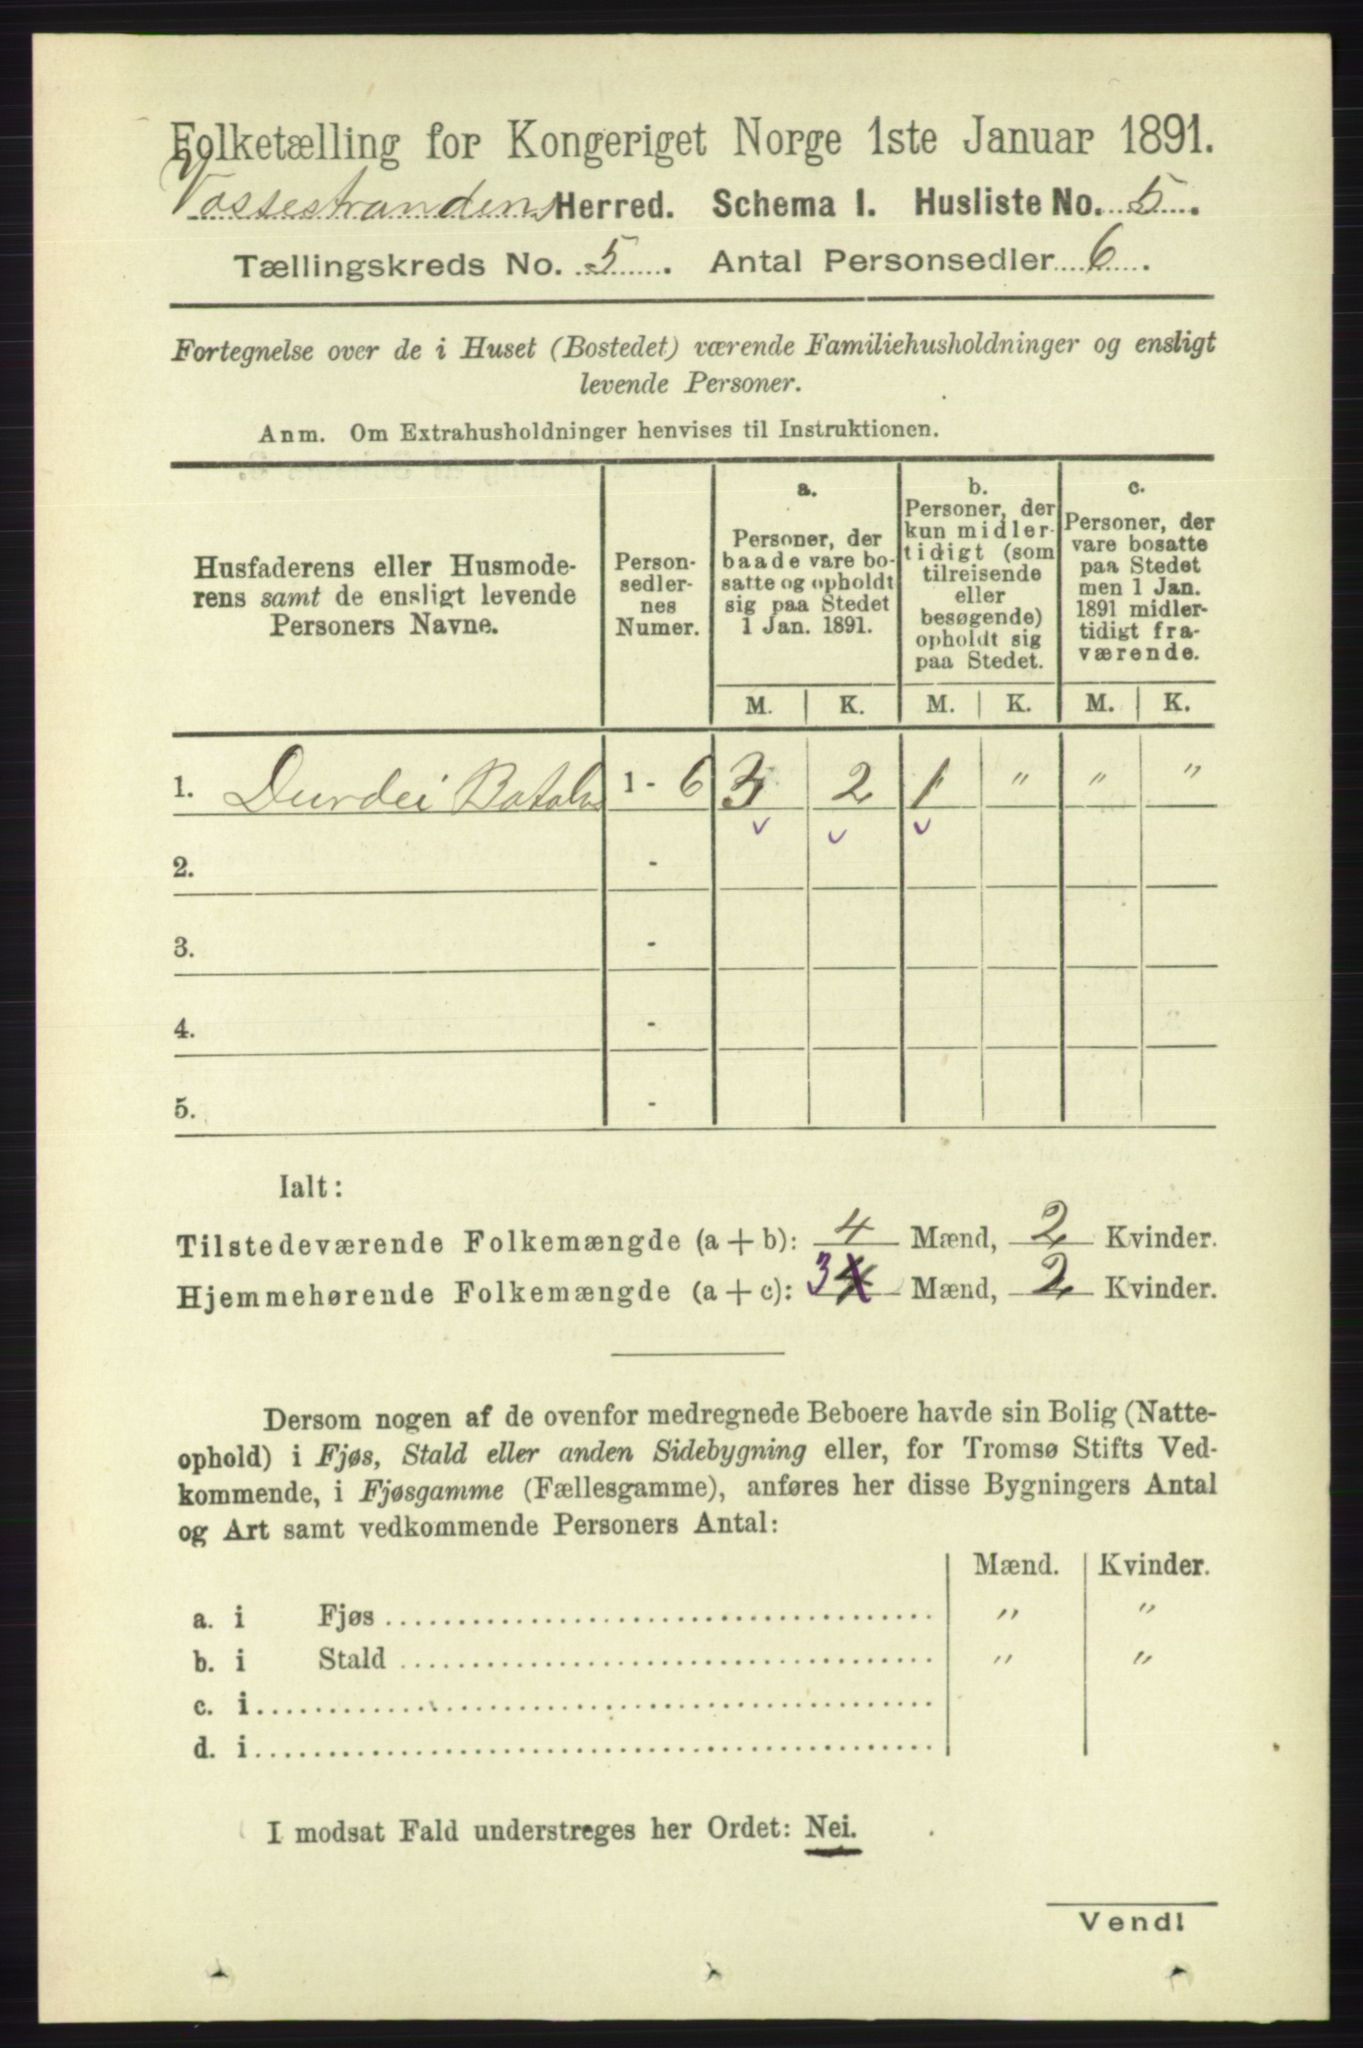 Folketælling for Kongeriget Norge 1ste Januar 1891.
Vossestrandens Herred. Schema I. Husliste No. 5.
Tællingskreds No. 5. Antal Personsedler 6.
Fortegnelse over de i Huset (Bostedet) værende Familiehusholdninger og ensligt
levende Personer.
Anm. Om Extrahusholdninger henvises til Instruktionen.
Husfaderens eller Husmode-
rens samt de ensligt levende
Personers Navne.
Person-
sedler-
nes
Numer.
a.
Personer, der
baade vare bo-
satte og opholdt
sig paa Stedet
1 Jan. 1891.
b.
Personer, der
kun midler-
tidigt (som
tilreisende
eller
besøgende)
opholdt sig
paa Stedet.
c.
Personer, der
vare bosatte
paa Stedet
men 1 Jan.
1891 midler-
tidigt fra-
værende.
M. K. M. K. M. K.
1. Durdei 1 - 6 3 2 1 " " "
2. -
3. -
4. -
5. -
Ialt:
Tilstedeværende Folkemængde (a + b): 4 Mænd, 2 Kvinder.
Hjemmehørende Folkemængde (a + c): 3 4 Mænd, 2 Kvinder.
Dersom nogen af de ovenfor medregnede Beboere havde sin Bolig (Natte-
ophold) i Fjøs, Stald eller anden Sidebygning eller, for Tromsø Stifts Ved-
kommende, i Fjøsgamme (Fællesgamme), anføres her disse Bygningers Antal
og Art samt vedkommende Personers Antal:
Mænd. Kvinder.
a. i Fjøs " "
b. i Stald " "
c. i
d. i
I modsat Fald understreges her Ordet: Nei.
Vend!